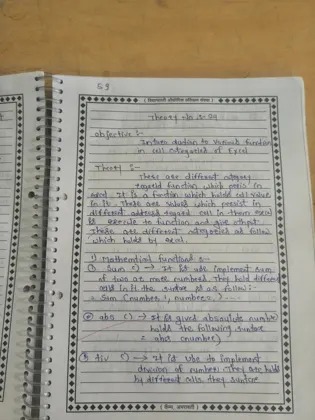 59
Theory No. 5:-
Objective :-
Introduction to various function
in cell categories of Excel
Theory :-
These are different category
function which persis in
excel. It is a function which holds cell value
in it. These are which persist in
different address cell in them excel
is to function and give output.
These are different categories as follow
which holds by excel.
1) Mathematical functions :-
① Sum () → It is use implement sum
of two or more numbers. They hold different
cells in it the suntax is as follow :-
= Sum (number 1, number 2 )...
② abs () → It is gives absolute number
holds the following suntax
= abs (number)
③ div () → It is use to implement
division of number. They are holds
by different cells. they suntax